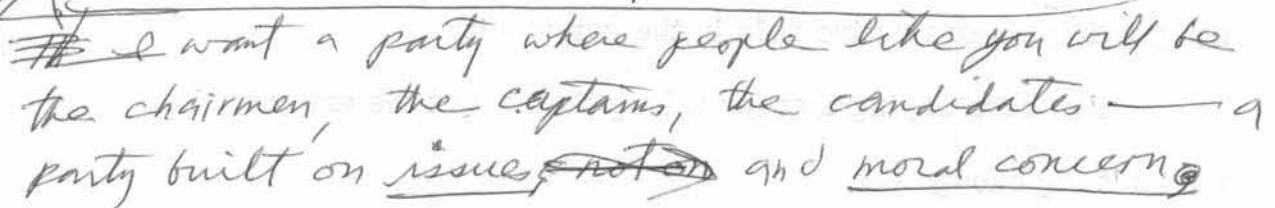 I want a party where people like you will be
the chairmen, the captains, the candidates — a
party built on issues, not on and moral concern.